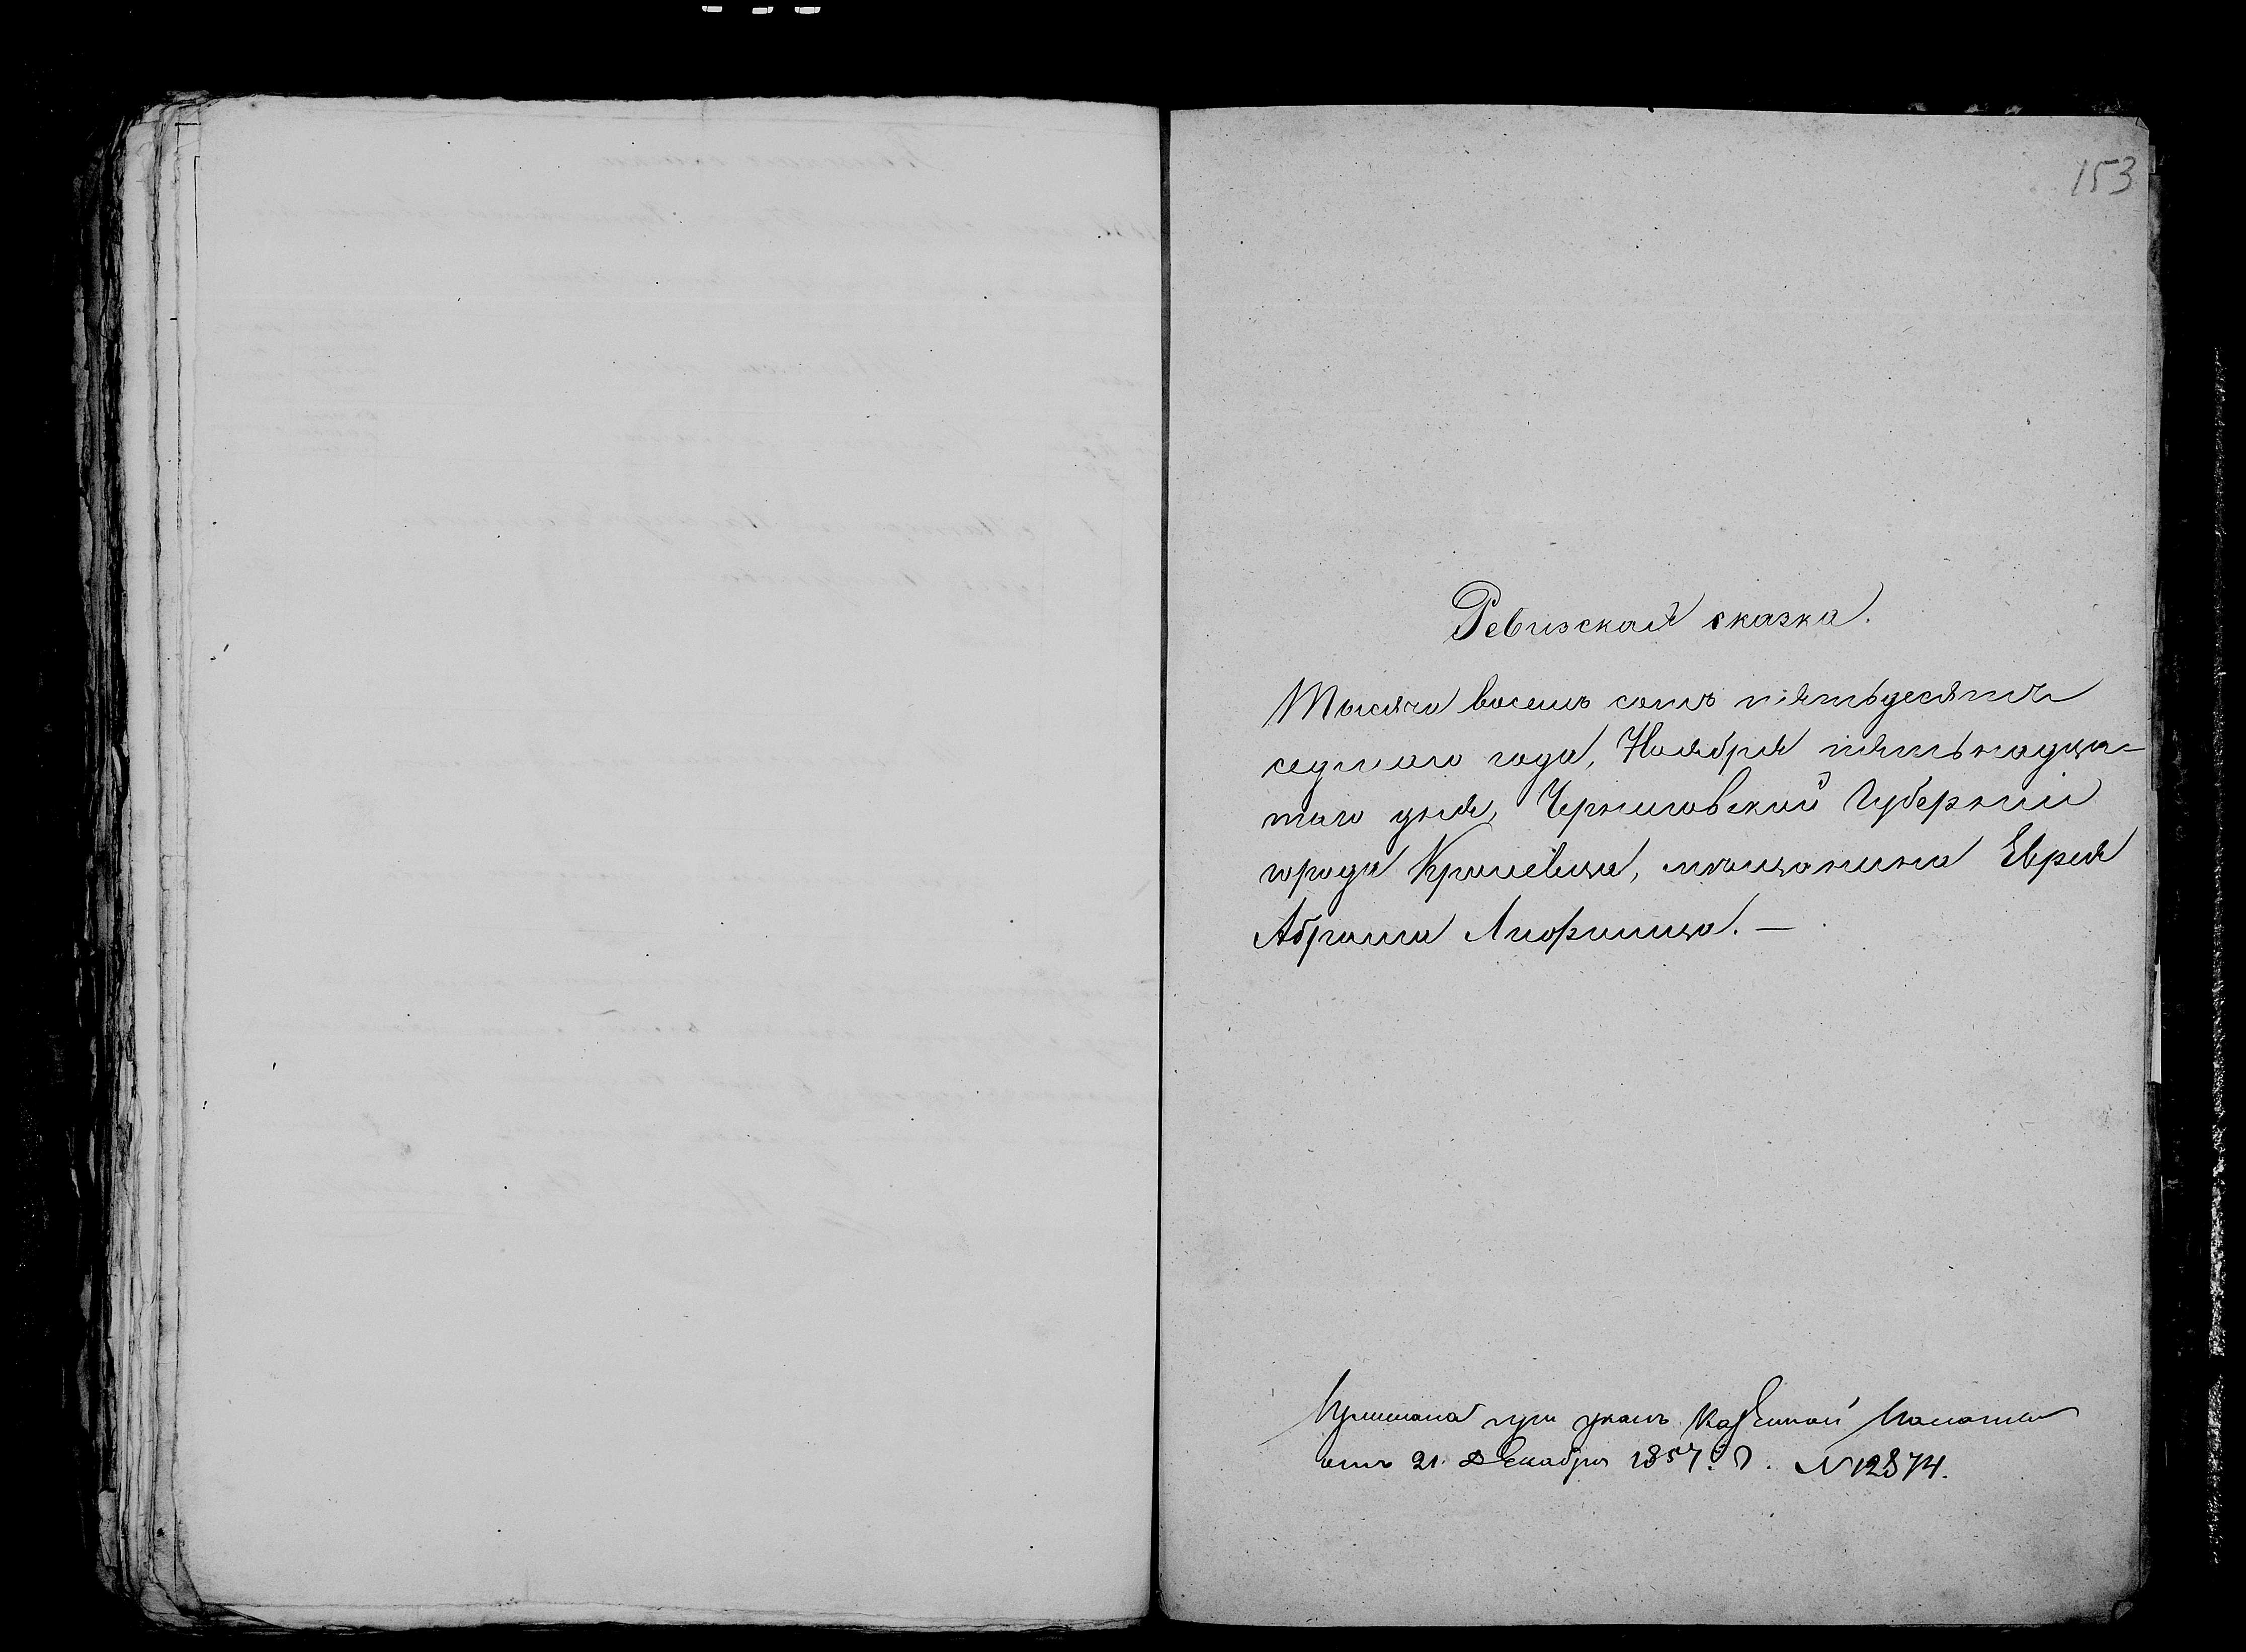 153
Ревизская сказка.
Тысяча восемь сотъ пятьдесятъ
седмого года, Ноября пятьнадца-
таго дня, Черниговской Губернии
города Кролевца, мещанина Еврея
Абрама Лифшица. —
при указѣ Казенной Палаты
отъ 21. Декабря 1857. г. N 12874.